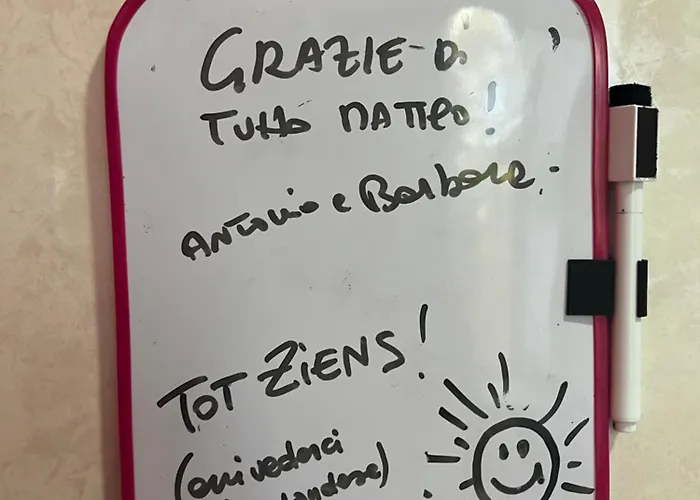 GRAZIE di
TUtto MATTEO!
ANTONIO e Barbara
TOT ZIENS!
(arrivederci